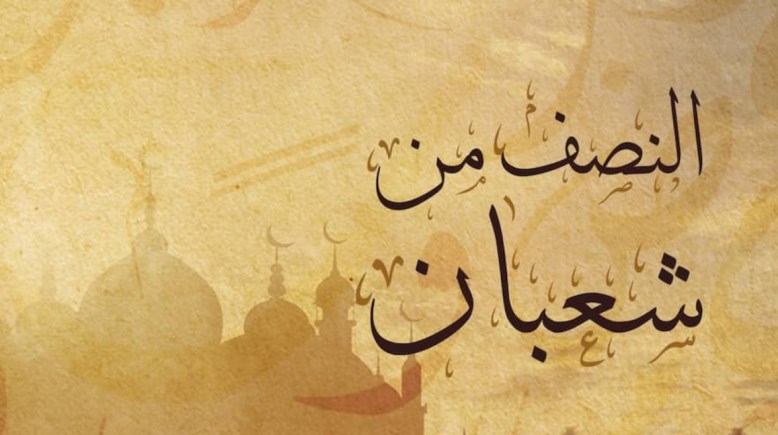 النصف من
شعبان